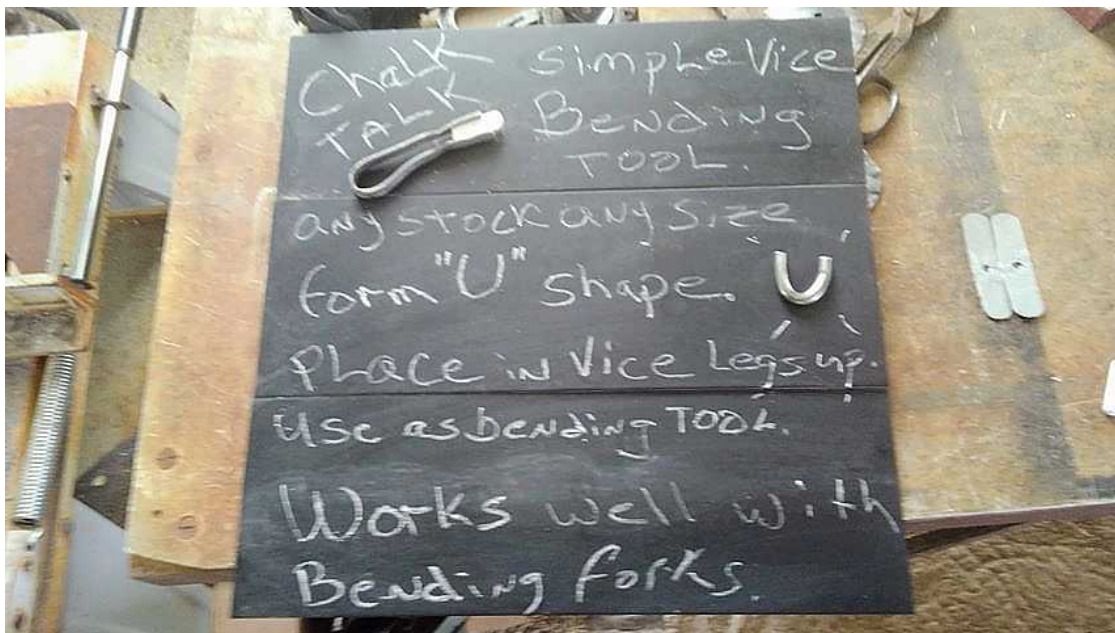 Chalk Simple Vice
Talk Bending
Tool.
any stock any size
form "U" shape.
Place in Vice Legs up.
Use as bending Tool.
Works well with
Bending forks.